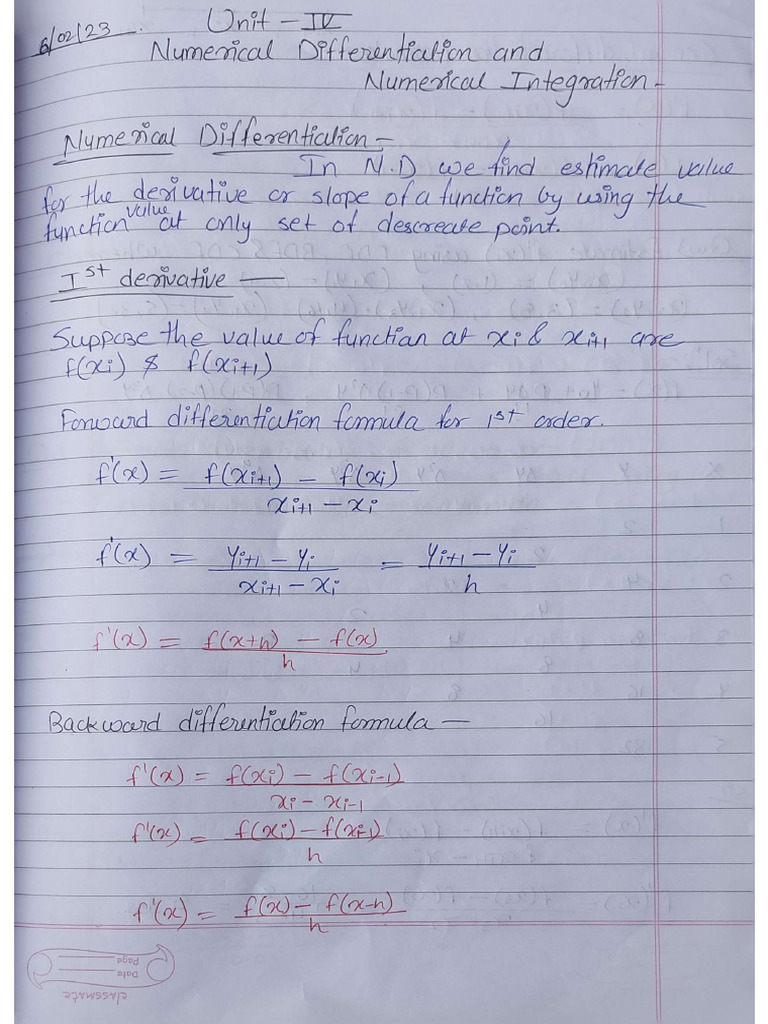 6/02/23.
Unit - IV
Numerical Differentiation and
Numerical Integration -
Numerical Differentiation -
In N.D we find estimate value
for the derivative or slope of a function by using the
function value at only set of descreate point.
Ist derivative —
Suppose the value of function at xi & xi+1 are
f(xi) & f(xi+1)
Forward differentiation formula for 1st order.
f'(x) = f(xi+1) - f(xi) / xi+1 - xi
f'(x) = yi+1 - yi / xi+1 - xi = yi+1 - yi / h
f'(x) = f(x+h) - f(x) / h
Backward differentiation formula —
f'(x) = f(xi) - f(xi-1) / xi - xi-1
f'(x) = f(xi) - f(xi-1) / h
f'(x) = f(x) - f(x-h) / h
classmate
Date
Page